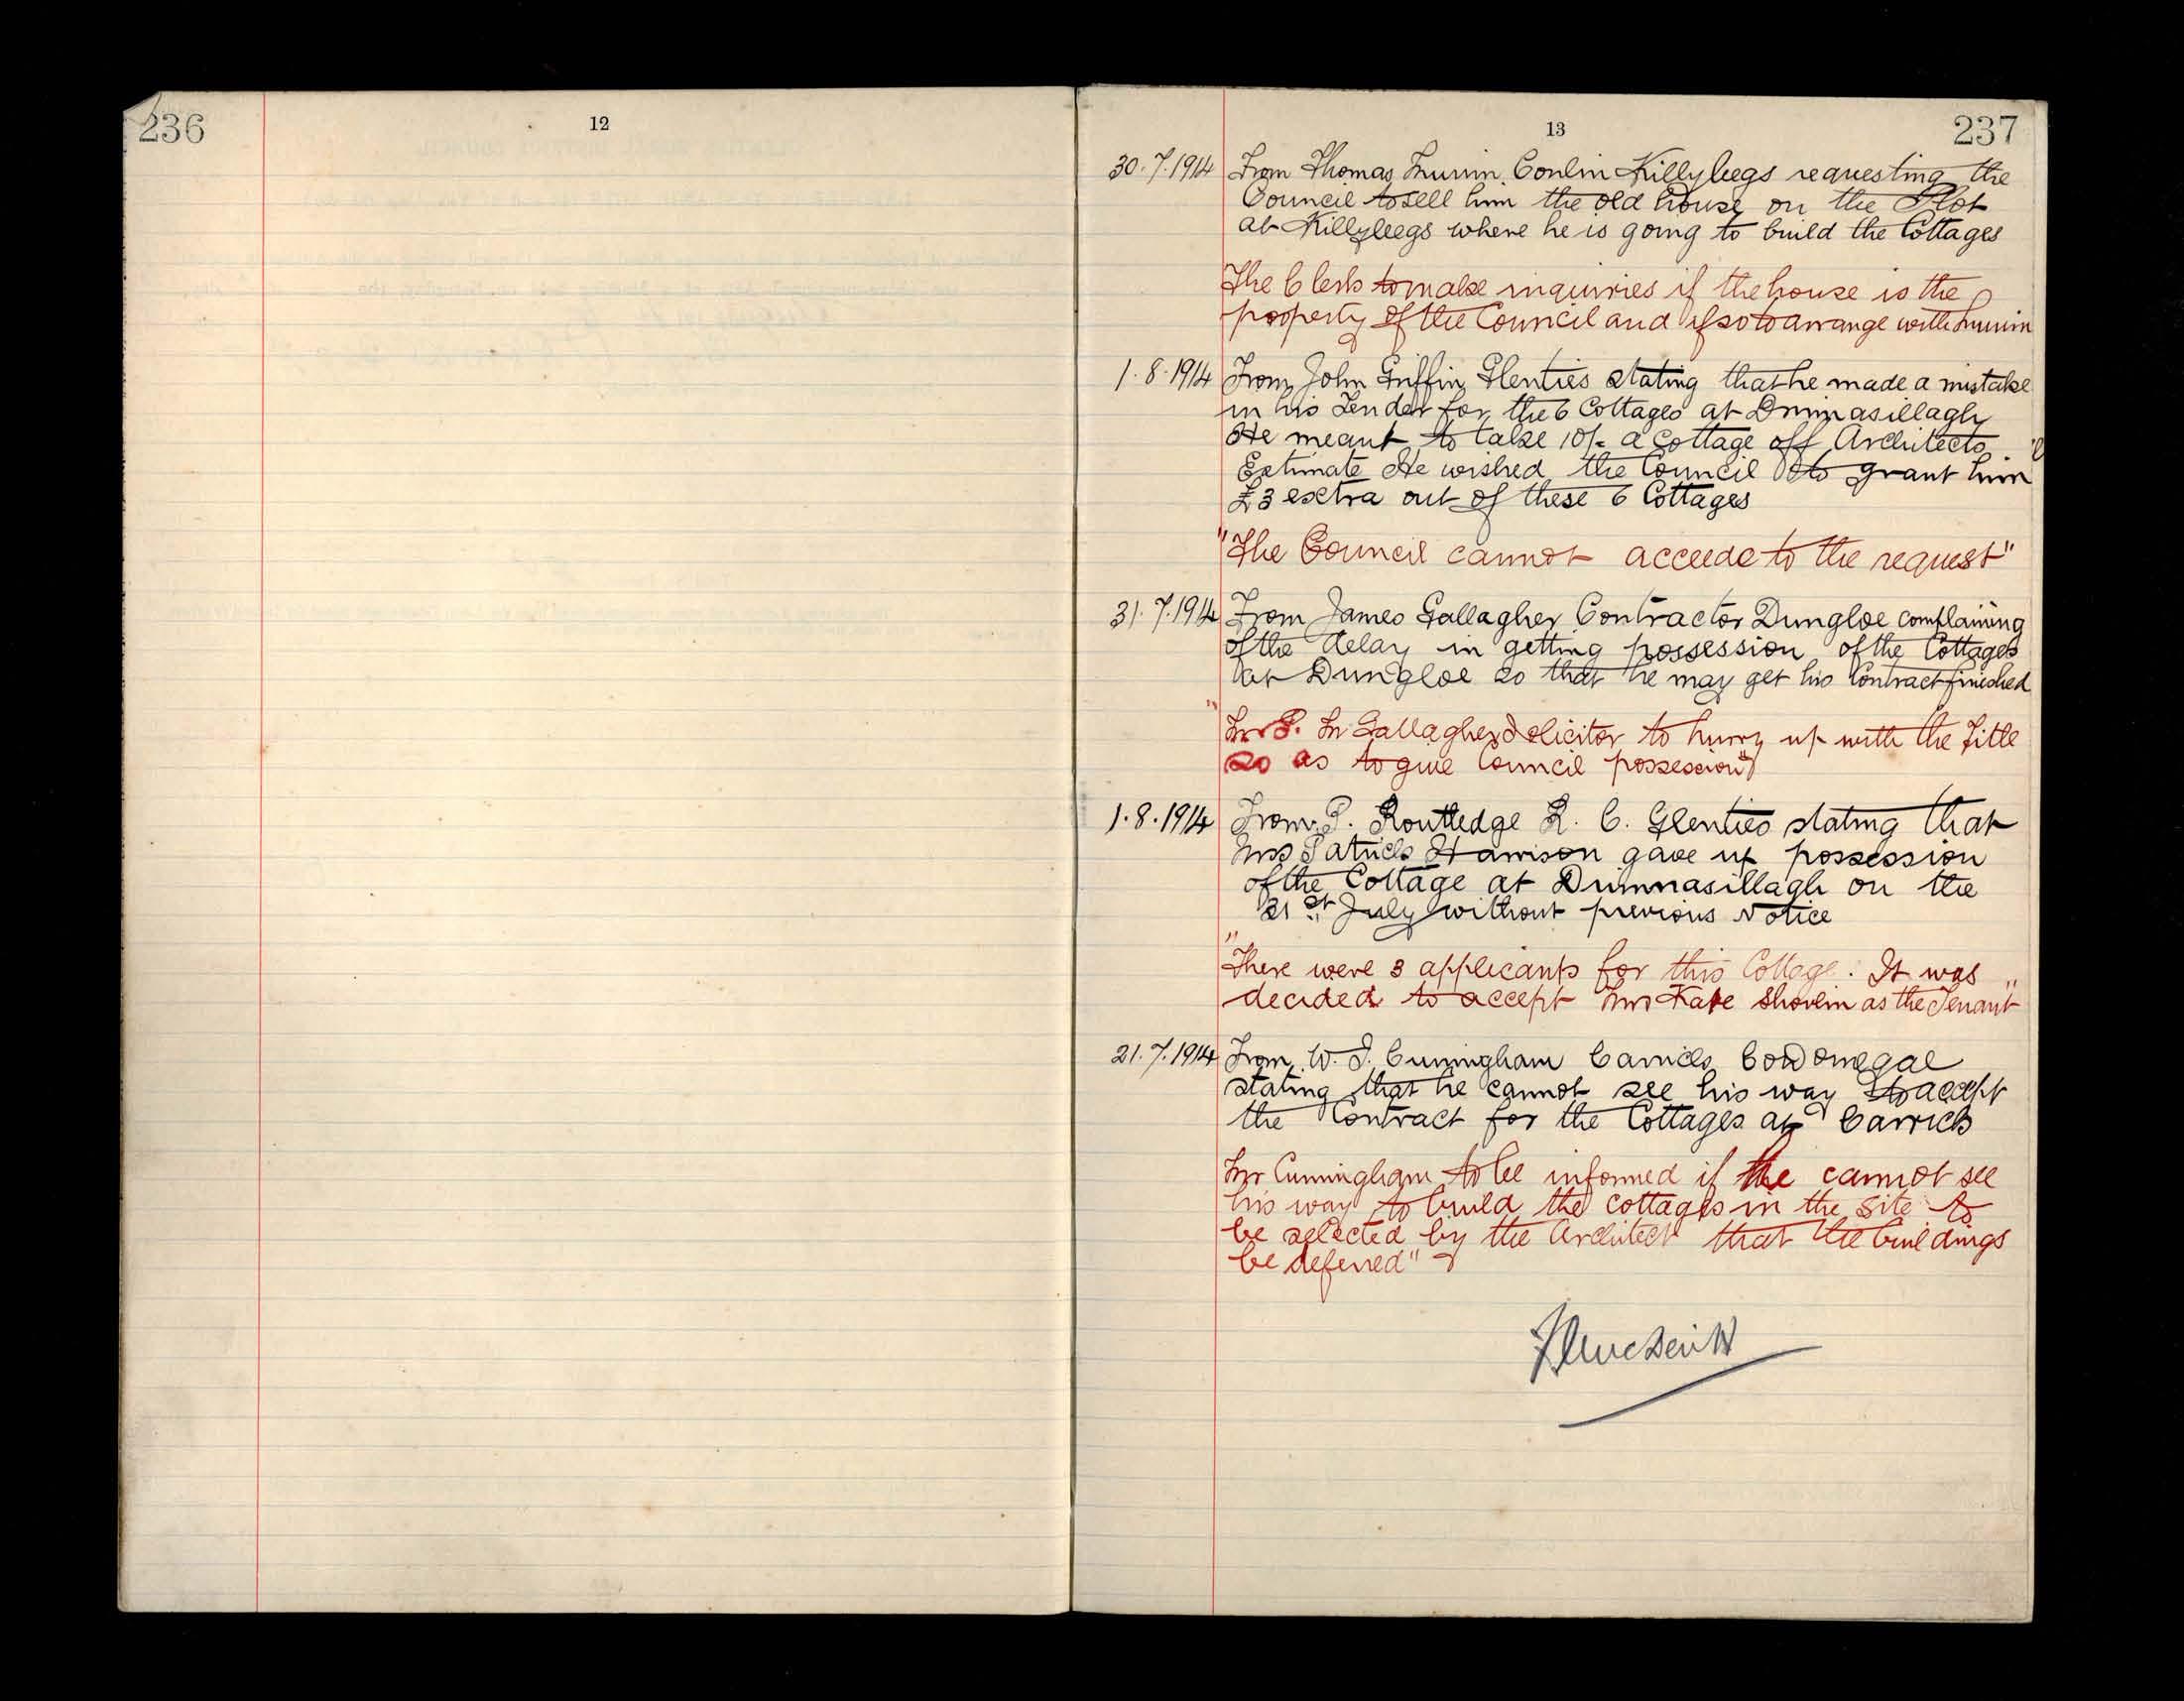 236
12
13
237
30.7.1914 From Thomas Conlin Killybegs requesting the
Council to sell him the old house on the Plot
at Killybegs where he is going to build the Cottages
The Clerk to make inquiries if the house is the
property of the Council and if so to arrange with
1.8.1914 From John Griffin Glenties stating that he made a mistake
in his Tender for the 6 Cottages at Drimnasillagh
He meant to take 10/- a Cottage off Architects
Estimate He wished the Council to grant him
£3 extra out of these 6 Cottages
"The Council cannot acceede to the request"
31.7.1914 From James Gallagher Contractor Dungloe complaining
of the delay in getting possession of the Cottages
at Dungloe so that he may get his Contract finished
"Mr P. M Gallagher Solicitor to hurry up with the Title
so as to give Council possession"
1.8.1914 From P. Routledge R. C. Glenties stating that
Mrs Patrick Harrison gave up possession
of the Cottage at Drimnasillagh on the
21st July without previous Notice
"There were 3 applicants for this Cottage. It was
decided to accept Mrs Kate Shovlin as the Tenant"
21.7.1914 From W. J. Cunningham Carrick Co Donegal
stating that he cannot see his way to accept
the Contract for the Cottages at Carrick
Mr Cunningham to be informed if he cannot see
his way to build the cottages in the site to
be selected by the Architect that the buildings
be deferred"